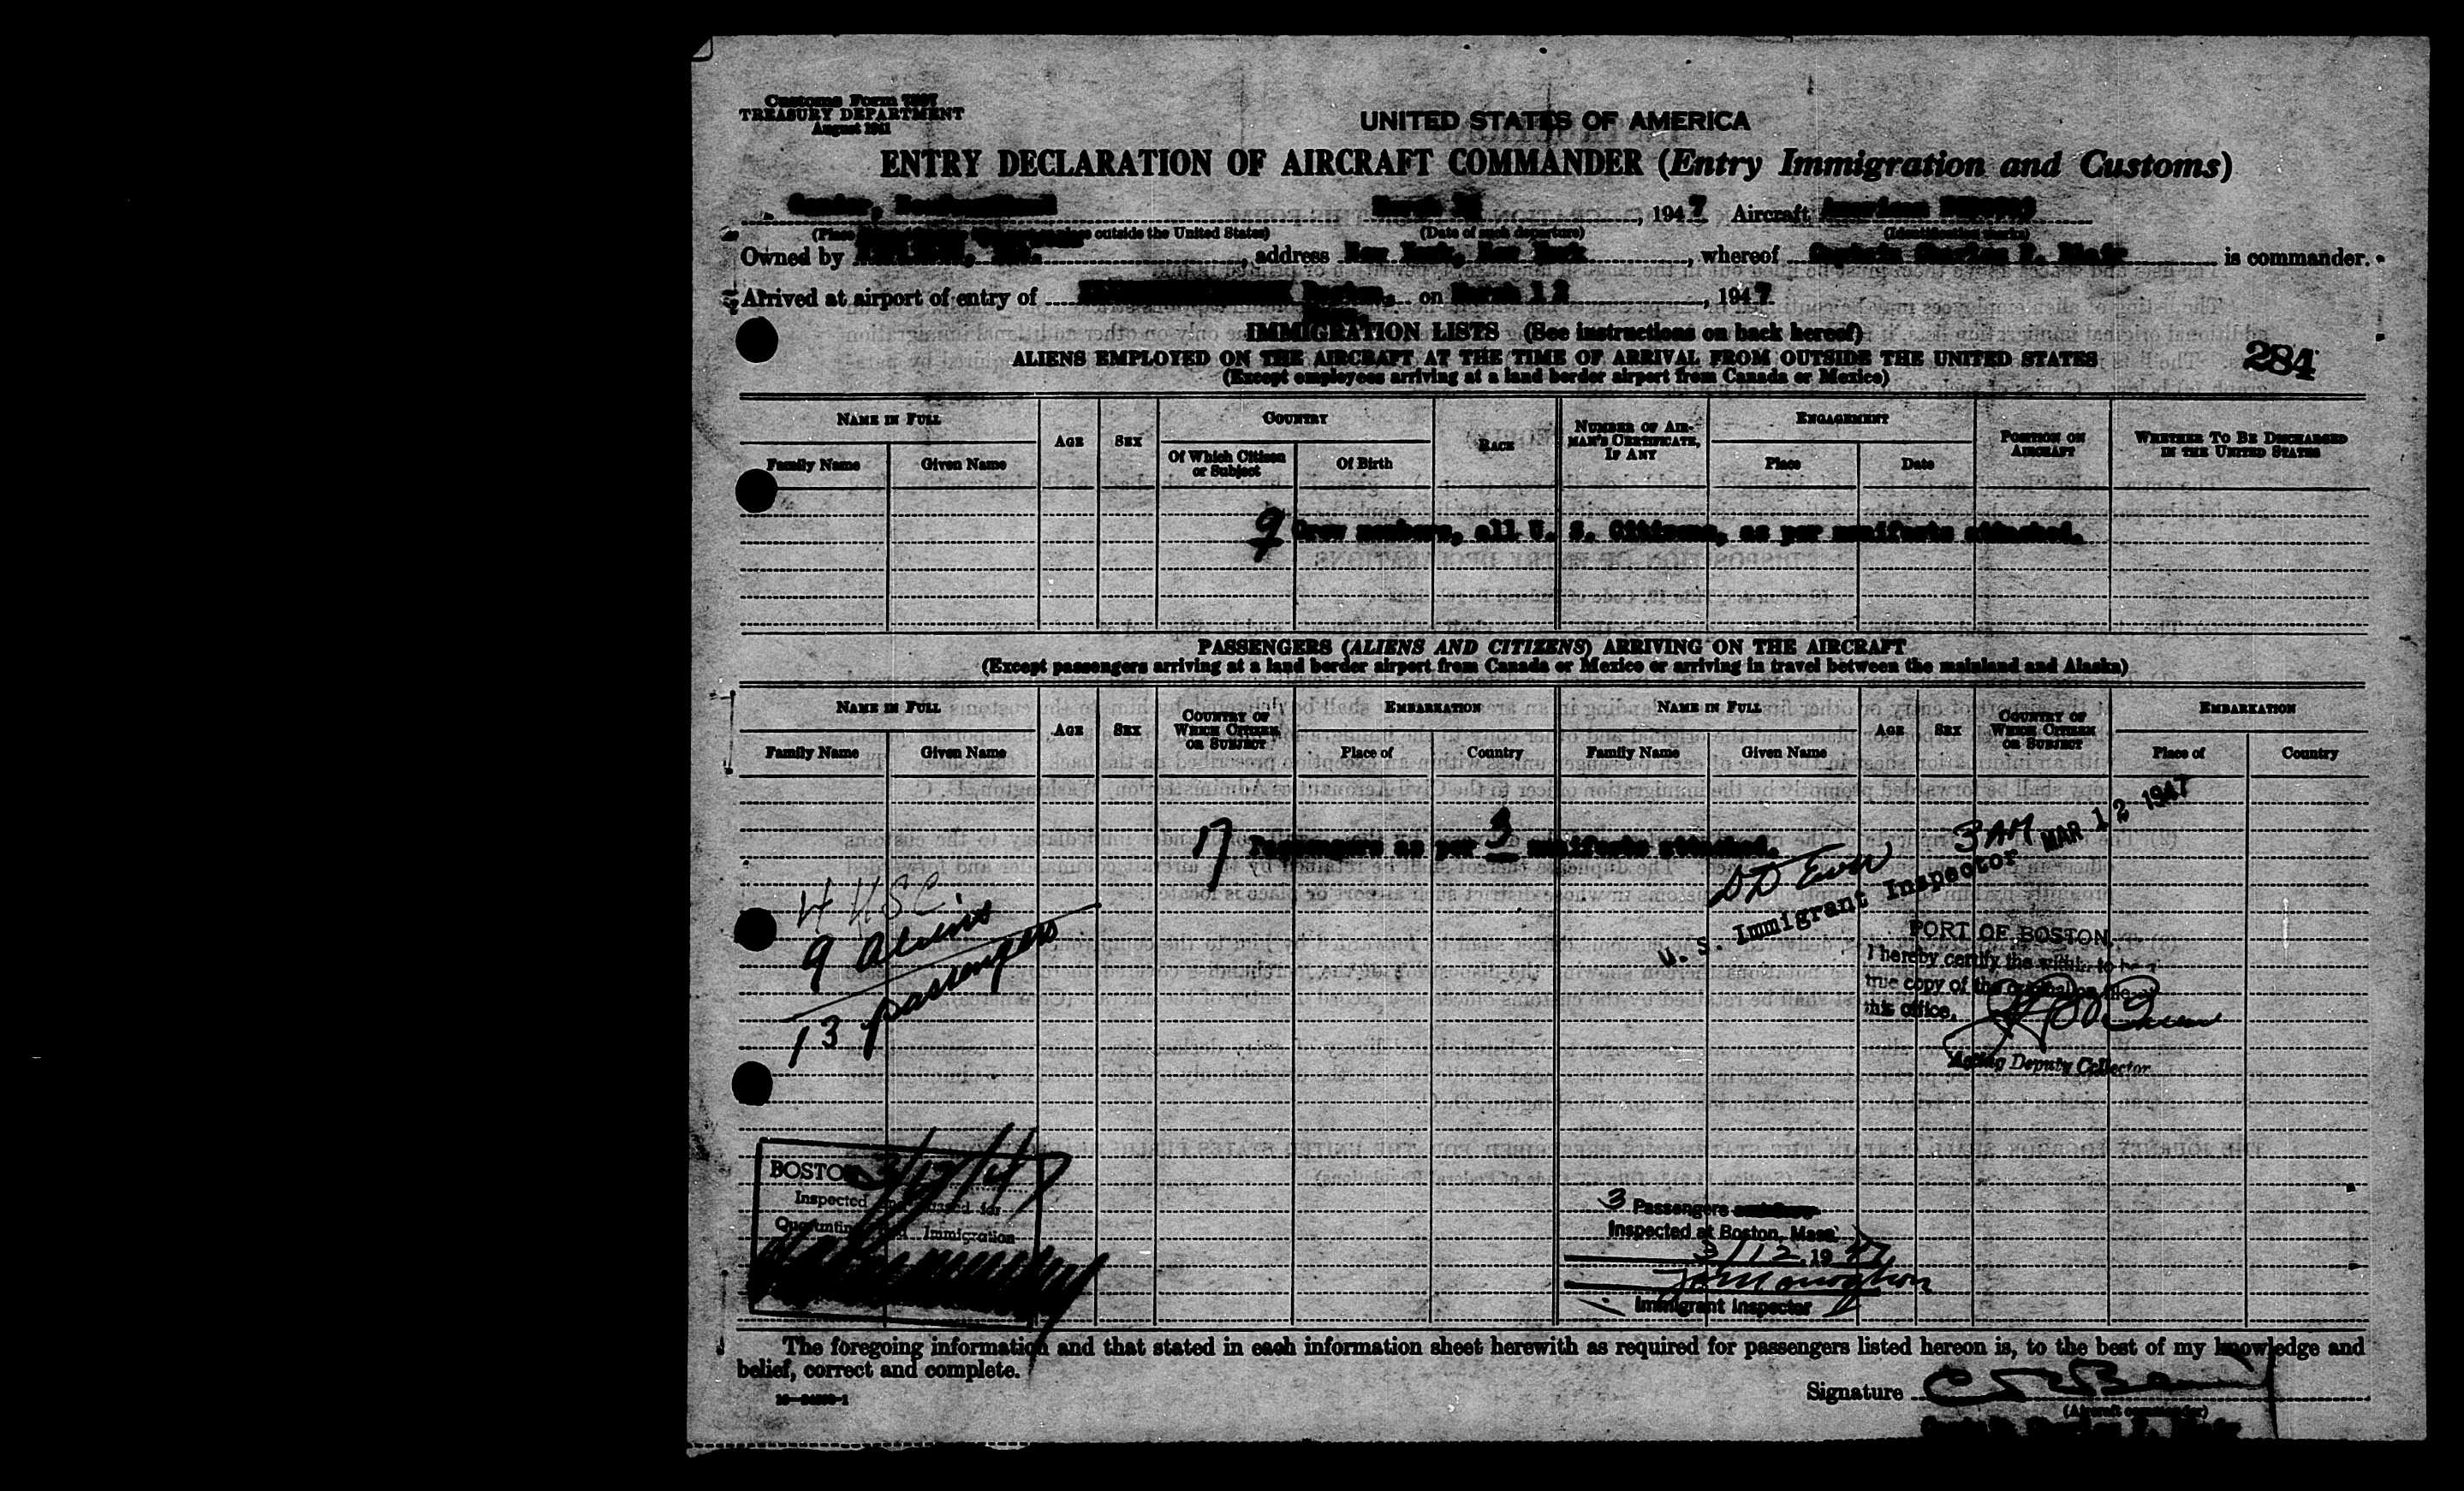 Customs Form 7507
TREASURY DEPARTMENT
August 1941
UNITED STATES OF AMERICA
ENTRY DECLARATION OF AIRCRAFT COMMANDER (Entry Immigration and Customs)
Gander, Newfoundland March , 1947 Aircraft American
(Place outside the United States) (Date of such departure) (Identification marks)
Owned by address New York, New York, whereof Captain Charles F. Blair is commander.
Arrived at airport of entry of Boston, on March 12, 1947
IMMIGRATION LISTS (See instructions on back hereof)
ALIENS EMPLOYED ON THE AIRCRAFT AT THE TIME OF ARRIVAL FROM OUTSIDE THE UNITED STATES
284
(Except employees arriving at a land border airport from Canada or Mexico)
NAME IN FULL AGE SEX COUNTRY RACE NUMBER OF AIRMAN'S CERTIFICATE, IF ANY ENGAGEMENT POSITION ON AIRCRAFT WHETHER TO BE DISCHARGED IN THE UNITED STATES
Family Name Given Name Of Which Citizen or Subject Of Birth Place Date
9 Crew members, all U. S. Citizens, as per manifests attached.
PASSENGERS (ALIENS AND CITIZENS) ARRIVING ON THE AIRCRAFT
(Except passengers arriving at a land border airport from Canada or Mexico or arriving in travel between the mainland and Alaska)
NAME IN FULL AGE SEX COUNTRY OF WHICH CITIZEN OR SUBJECT EMBARKATION NAME IN FULL AGE SEX COUNTRY OF WHICH CITIZEN OR SUBJECT EMBARKATION
Family Name Given Name Place of Country Family Name Given Name Place of Country
17 Passengers as per 3 manifests attached.
3 AM MAR 12 1947
U. S. Immigrant Inspector
4 USC
9 Aliens
13 passengers
PORT OF BOSTON,
I hereby certify the within to be a
true copy of the original on file
this office.
Acting Deputy Collector
BOSTON 3/12/47
Inspected and passed for
Quarantine and Immigration
3 Passengers
Inspected at Boston, Mass.
3/12 1947
Immigrant Inspector
The foregoing information and that stated in each information sheet herewith as required for passengers listed hereon is, to the best of my knowledge and
belief, correct and complete.
Signature
(Aircraft commander)